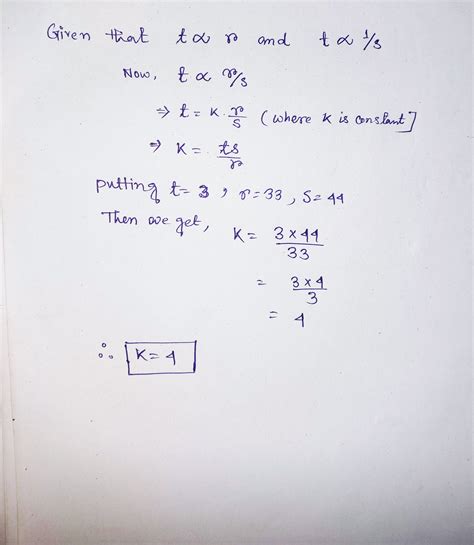 Given that t ∝ r and t ∝ 1/s
Now, t ∝ r/s
⇒ t = K · r/s (where K is constant]
⇒ K = ts/r
putting t = 3, r = 33, S = 44
Then we get, K = 3 × 44 / 33
= 3 × 4 / 3
= 4
∴ K = 4